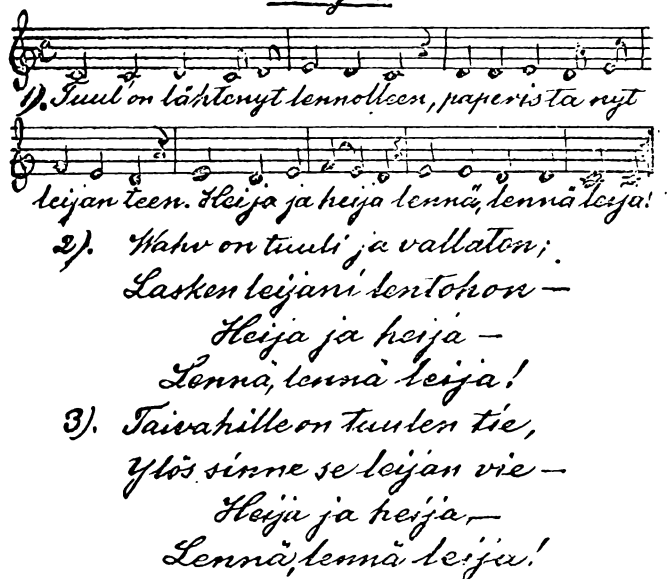 1). Tuul'on lähtenyt lennolleen, paperista nyt
leijan teen. Heija ja heija lennä, lennä leija!
2). Wahv on tuuli ja vallaton;
Lasken leijani lentohon —
Heija ja heija —
Lennä, lennä leija!
3). Taivahille on tuulen tie,
Ylös sinne se leijan vie —
Heija ja heija, —
Lennä, lennä leija!